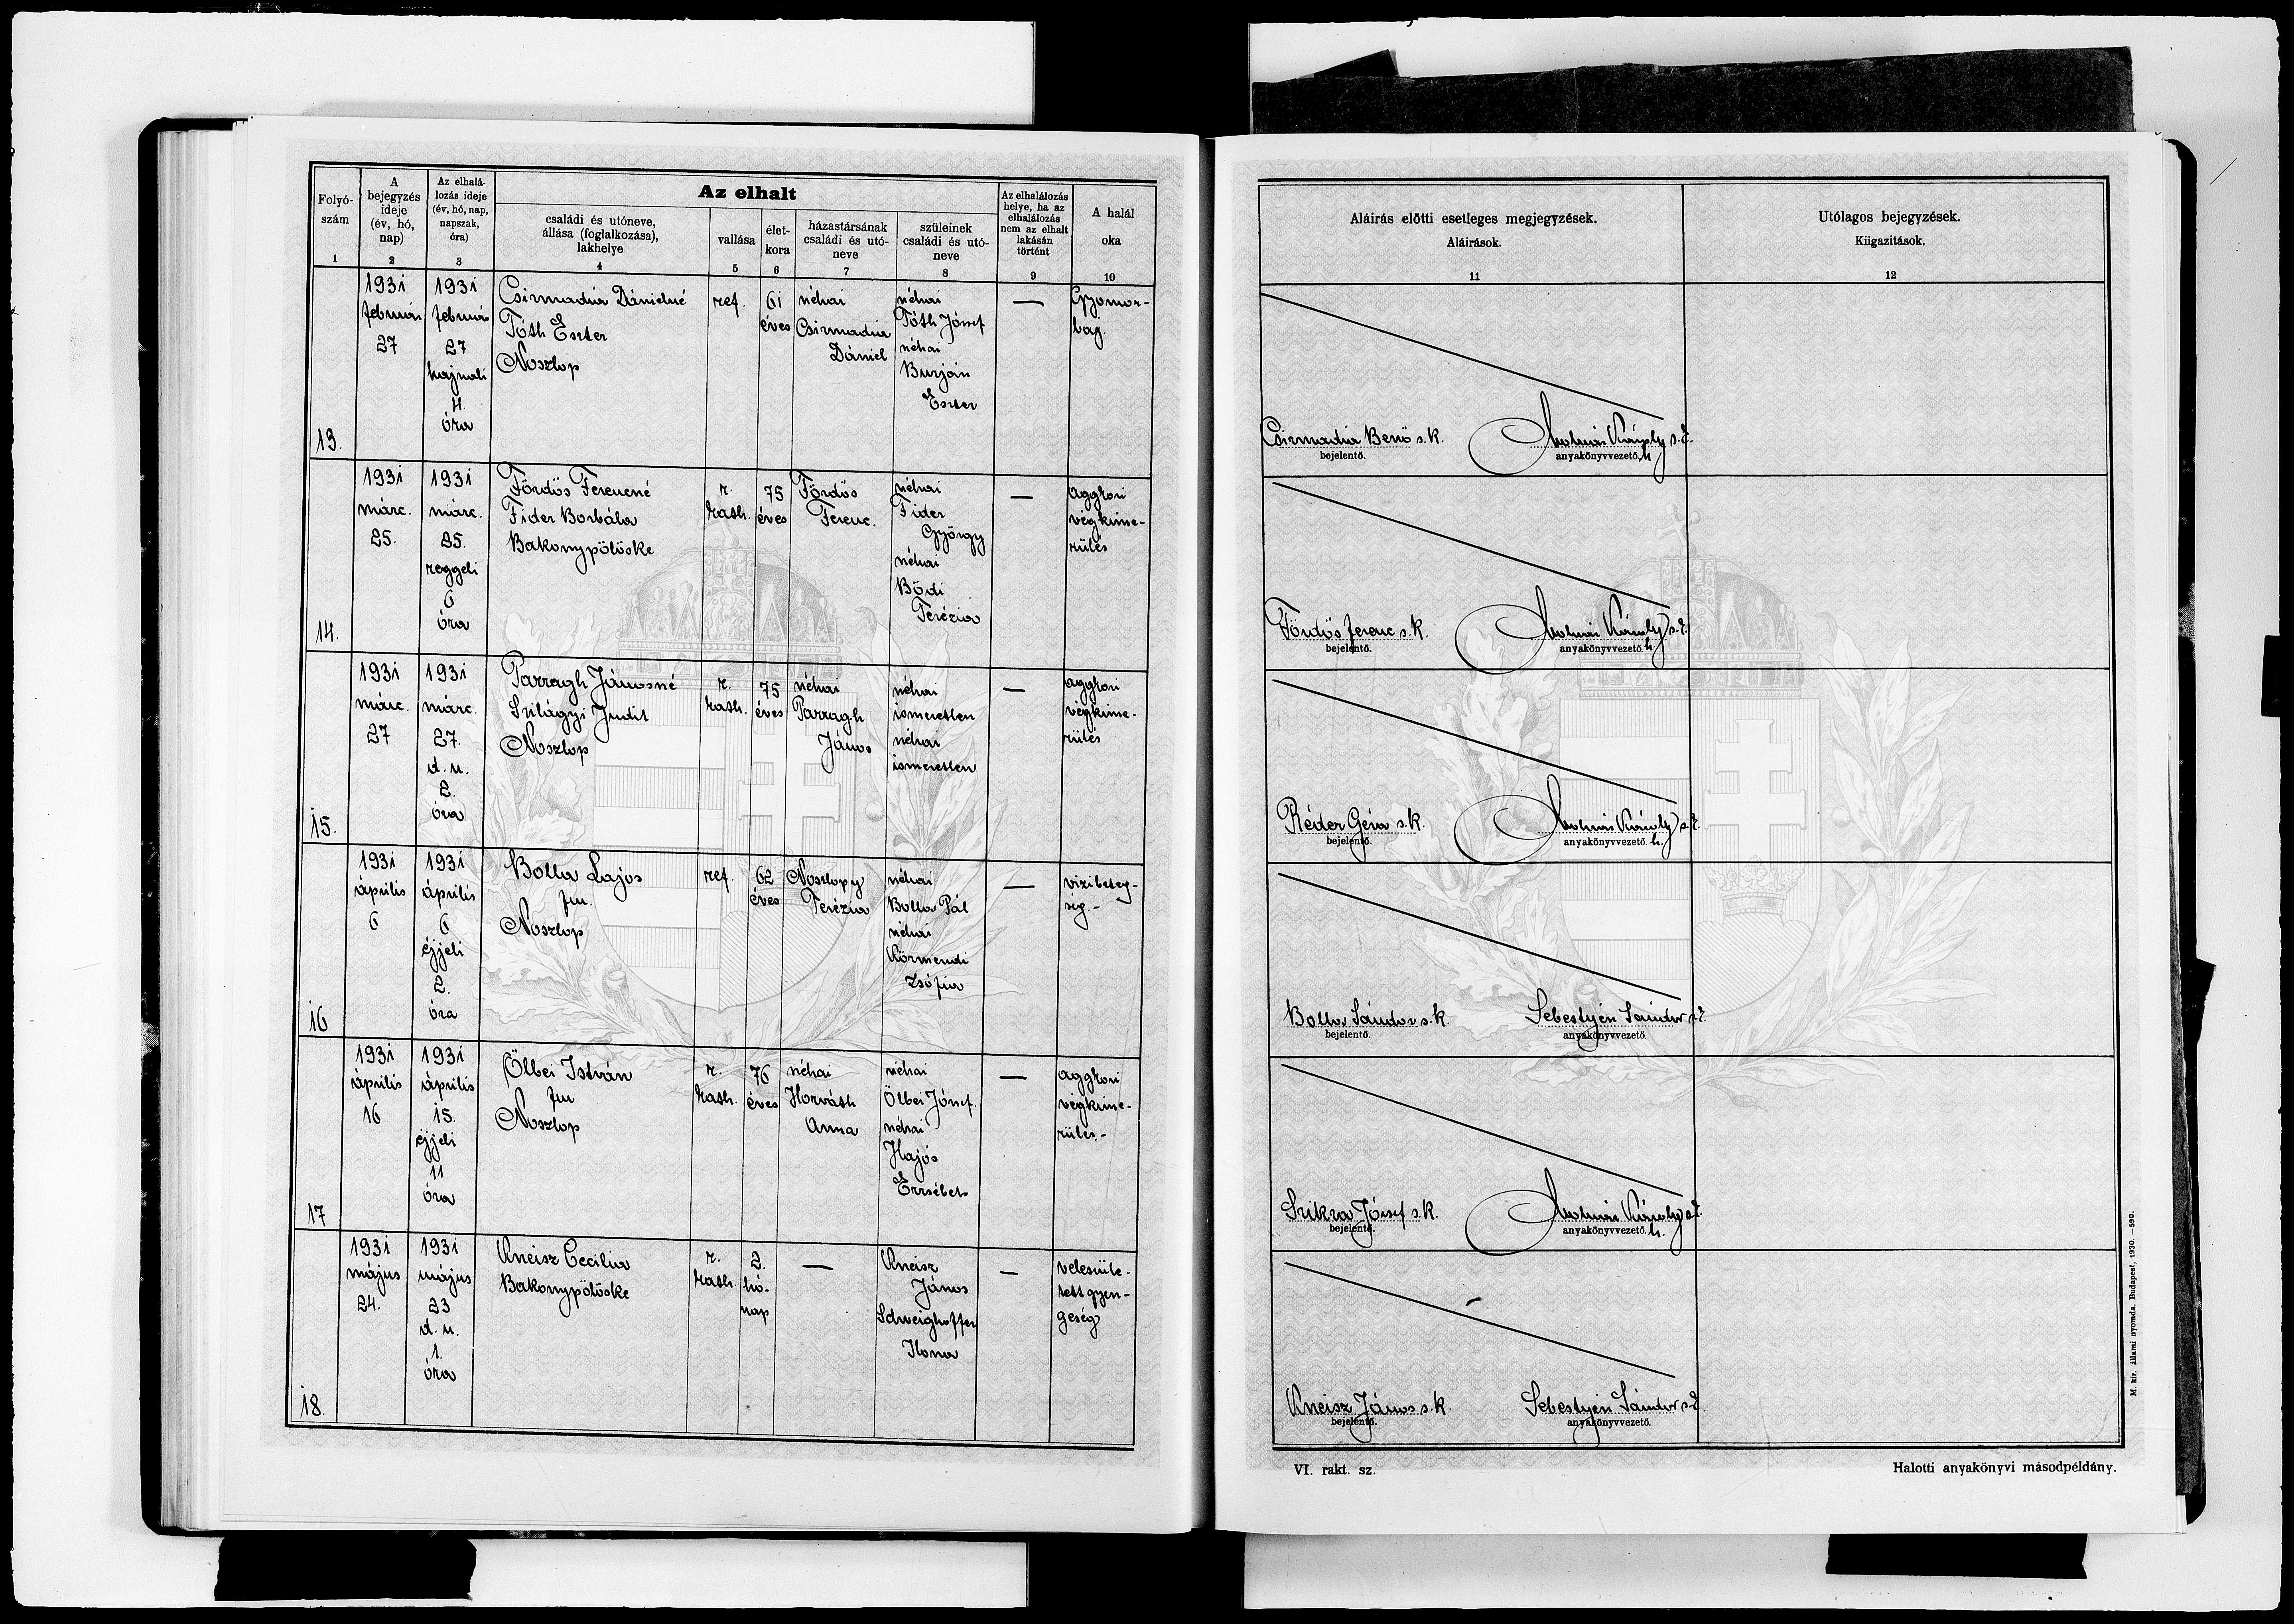 Folyó-
szám
1
A
bejegyzés
ideje
(év, hó,
nap)
2
Az elhalá-
lozás ideje
(év, hó, nap,
napszak,
óra)
3
Az elhalt
családi és utóneve,
állása (foglalkozása),
lakhelye
4
vallása
5
élet-
kora
6
házastársának
családi és utó-
neve
7
szüleinek
családi és utó-
neve
8
Az elhalálozás
helye, ha az
elhalálozás
nem az elhalt
lakásán
történt
9
A halál
oka
10
13.
1931
február
27
1931
február
27
hajnali
4.
óra
Csizmadia Dánielné
Tóth Eszter
Noszlop
ref.
61
éves
néhai
Csizmadia
Dániel
néhai
Tóth József
néhai
Burján
Eszter
—
Gyomor-
baj.
14.
1931
márc.
25.
1931
márc.
25.
reggeli
6
óra
Fördős Ferencné
Fider Borbála
Bakonypölöske
r.
kath.
75
éves
Fördős
Ferenc.
néhai
Fider
György
néhai
Bödi
Terézia
—
aggkori
végkime-
rülés
15.
1931
márc.
27
1931
márc.
27.
d. u.
2.
óra
Parragh Jánosné
Szilágyi Judit
Noszlop
r.
kath.
75
éves
néhai
Parragh
János
néhai
ismeretlen
néhai
ismeretlen
—
aggkori
végkime-
rülés
16
1931
április
6
1931
április
6
éjjeli
2.
óra
Bolla Lajos
fm.
Noszlop
ref.
62
éves
Noszlopy
Terézia
néhai
Bolla Pál
néhai
Körmendi
Zsófia
—
vizibeteg-
ség.-
17
1931
április
16
1931
április
15.
éjjeli
11
óra
Ölbei István
fm
Noszlop
r.
kath.
76
éves
néhai
Horváth
Anna
néhai
Ölbei József.
néhai
Hajós
Erzsébet
—
aggkori
végkime-
rülés.-
18.
1931
május
24.
1931
május
23
d. u.
1.
óra
Kneisz Cecilia
Bakonypölöske
r.
kath.
2.
hó-
nap
—
Kneisz
János
Schweighoffer
Ilona
—
veleszüle-
tett gyen-
geség
Aláirás előtti esetleges megjegyzések.
Aláirások.
11
Utólagos bejegyzések.
Kiigazitások.
12
Csizmadia Benő s. k.
bejelentő.
Károly s. k.
anyakönyvvezető. h.
Fördős Ferenc s. k.
bejelentő.
Károly s. k.
anyakönyvvezető. h.
Réder Géza s. k.
bejelentő.
Károly s. k.
anyakönyvvezető. h.
Bolla Sándor s. k.
bejelentő.
Sebestyén Sándor s. k.
anyakönyvvezető.
Szikra József s. k.
bejelentő.
Károly s. k.
anyakönyvvezető. h.
Kneisz János s. k.
bejelentő.
Sebestyén Sándor s. k.
anyakönyvvezető.
M. kir. állami nyomda. Budapest, 1930. —590.
VI. rakt. sz.
Halotti anyakönyvi másodpéldány.